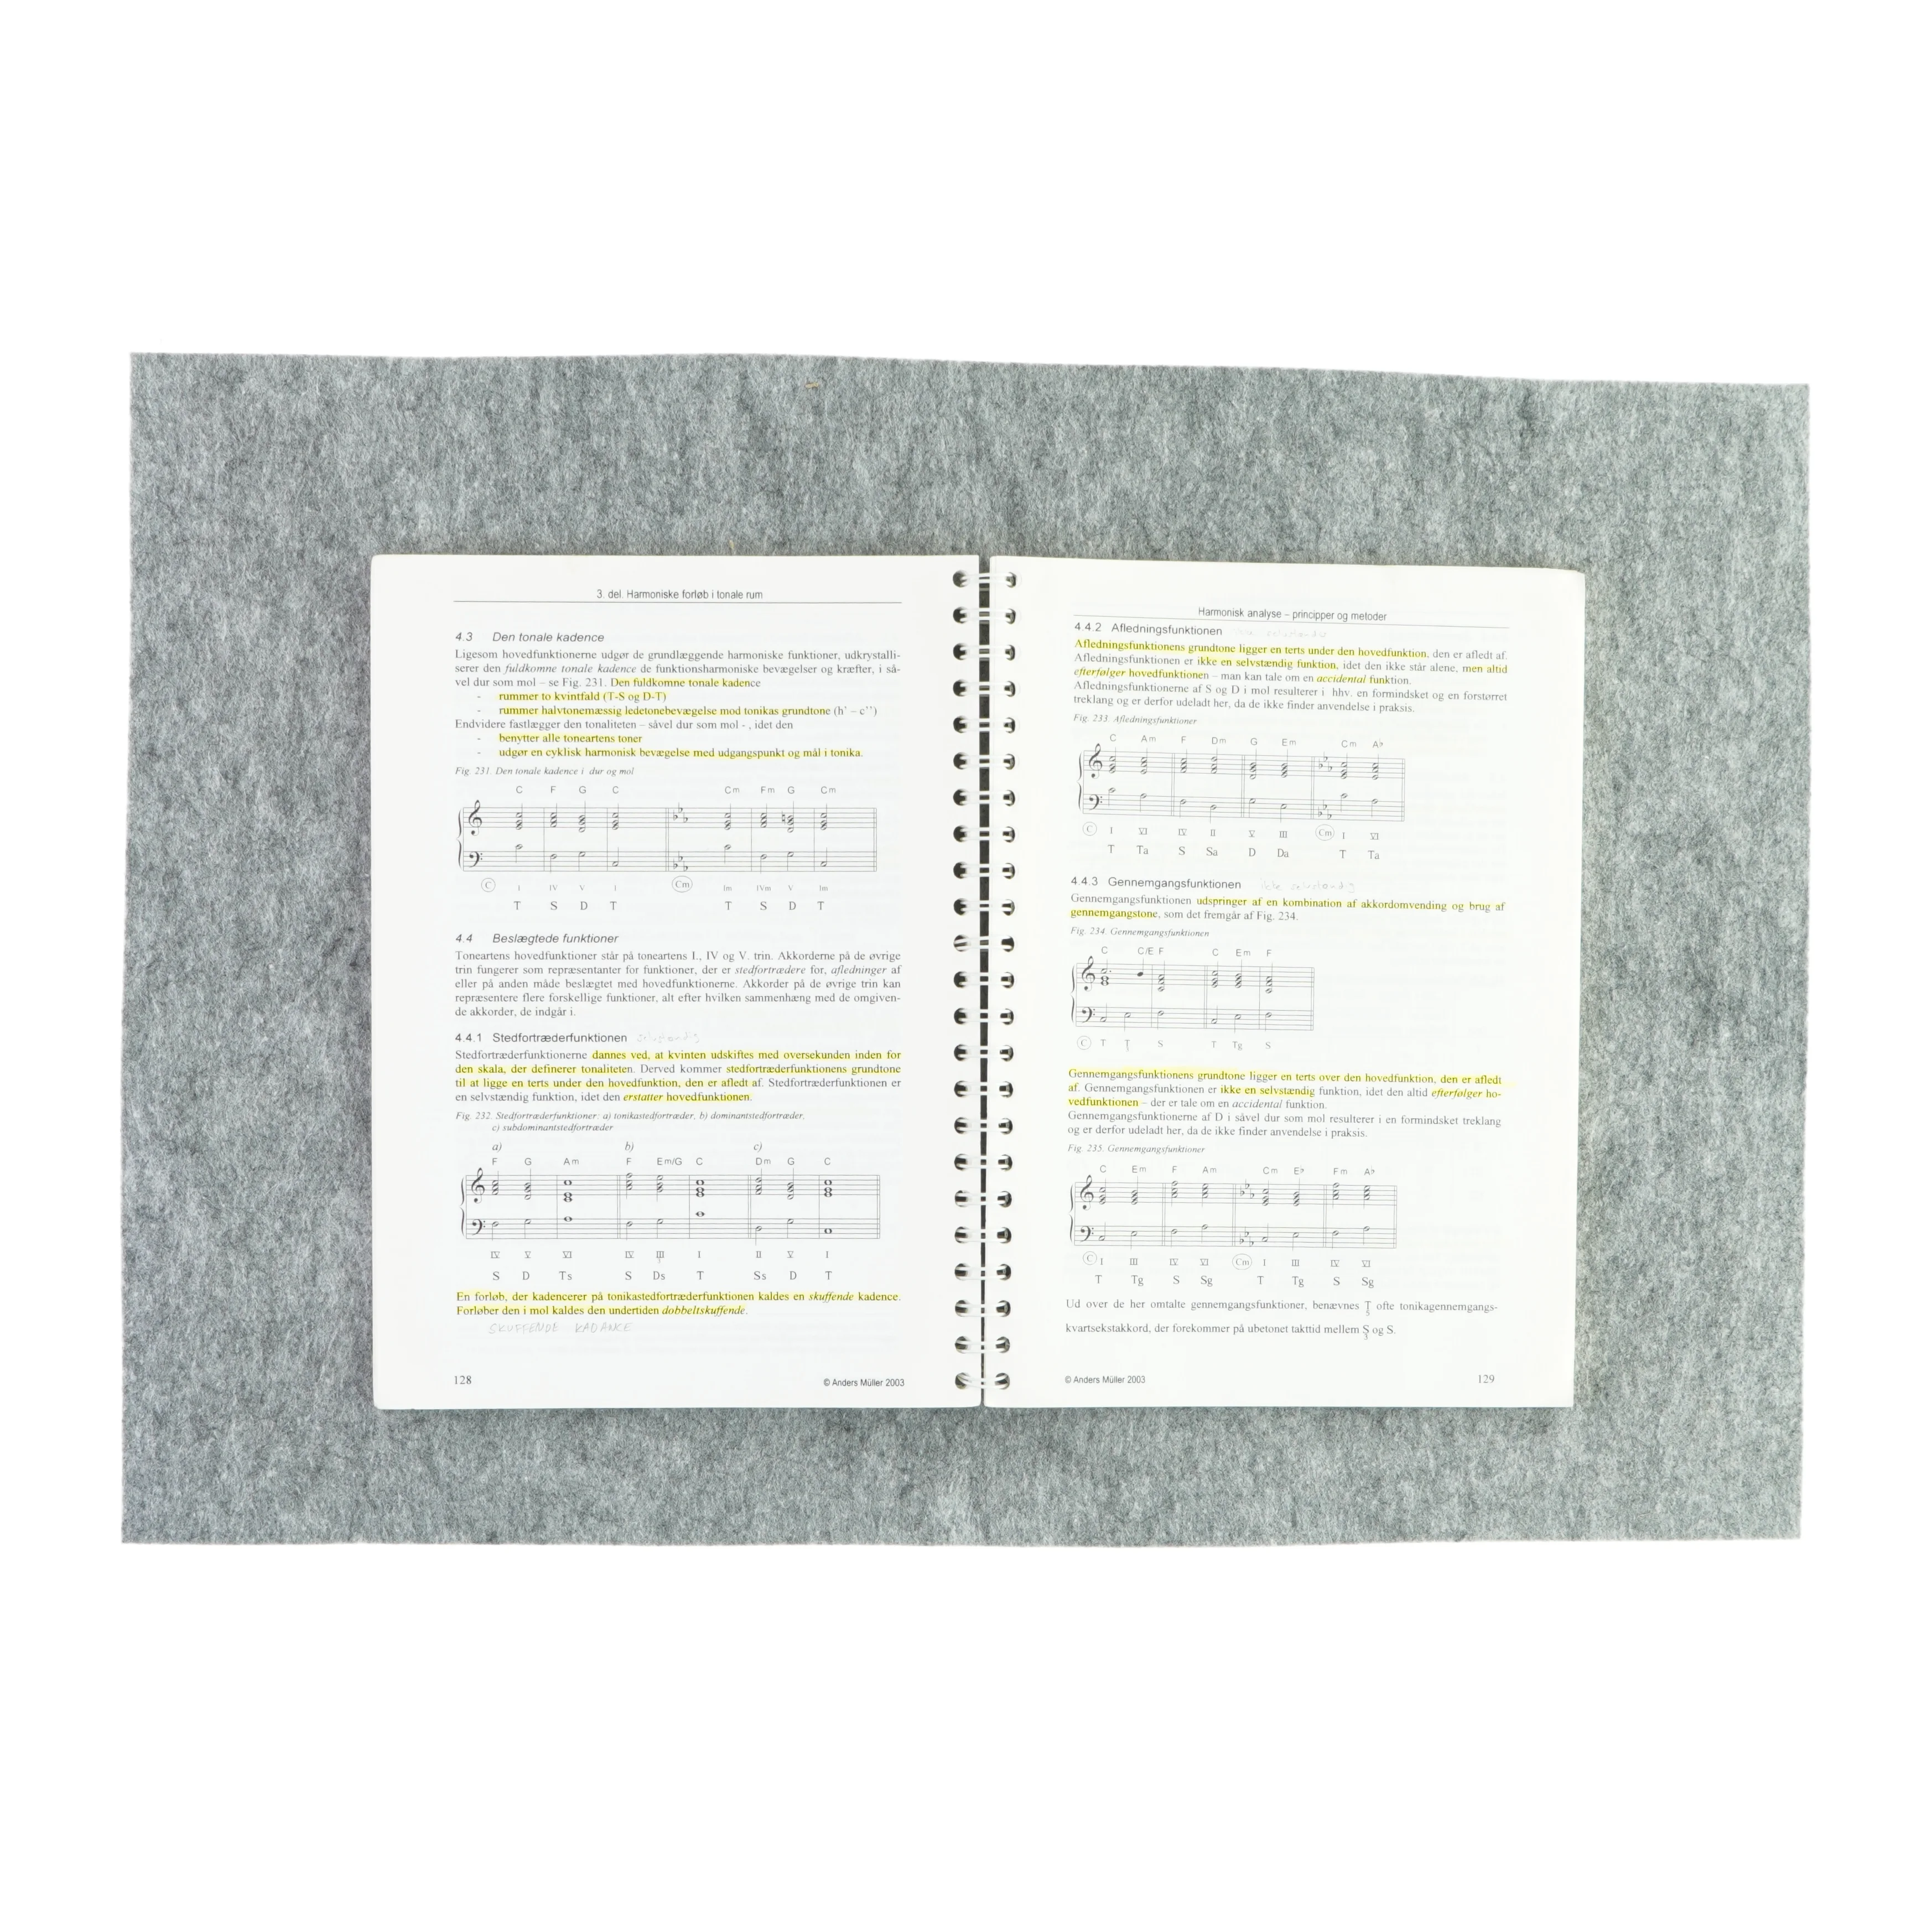 3. del. Harmoniske forløb i tonale rum
4.3 Den tonale kadence
Ligesom hovedfunktionerne udgør de grundlæggende harmoniske funktioner, udkrystalli-
serer den fuldkomne tonale kadence de funktionsharmoniske bevægelser og kræfter, i så-
vel dur som mol – se Fig. 231. Den fuldkomne tonale kadence
- rummer to kvintfald (T-S og D-T)
- rummer halvtonemæssig ledetonebevægelse mod tonikas grundtone (h' – c'')
Endvidere fastlægger den tonaliteten – såvel dur som mol - , idet den
- benytter alle toneartens toner
- udgør en cyklisk harmonisk bevægelse med udgangspunkt og mål i tonika.
Fig. 231. Den tonale kadence i dur og mol
C F G C Cm Fm G Cm
C I IV V I Cm Im IVm V Im
T S D T T S D T
4.4 Beslægtede funktioner
Toneartens hovedfunktioner står på toneartens I., IV og V. trin. Akkorderne på de øvrige
trin fungerer som repræsentanter for funktioner, der er stedfortrædere for, afledninger af
eller på anden måde beslægtet med hovedfunktionerne. Akkorder på de øvrige trin kan
repræsentere flere forskellige funktioner, alt efter hvilken sammenhæng med de omgiven-
de akkorder, de indgår i.
4.4.1 Stedfortræderfunktionen selvstændig
Stedfortræderfunktionerne dannes ved, at kvinten udskiftes med oversekunden inden for
den skala, der definerer tonaliteten. Derved kommer stedfortræderfunktionens grundtone
til at ligge en terts under den hovedfunktion, den er afledt af. Stedfortræderfunktionen er
en selvstændig funktion, idet den erstatter hovedfunktionen.
Fig. 232. Stedfortræderfunktioner: a) tonikastedfortræder, b) dominantstedfortræder,
c) subdominantstedfortræder
a) b) c)
F G Am F Em/G C Dm G C
IV V VI IV III I II V I
S D Ts S Ds T Ss D T
En forløb, der kadencerer på tonikastedfortræderfunktionen kaldes en skuffende kadence.
Forløber den i mol kaldes den undertiden dobbeltskuffende.
SKUFFENDE KADANCE
128 © Anders Müller 2003
Harmonisk analyse – principper og metoder
4.4.2 Afledningsfunktionen ikke selvstændig
Afledningsfunktionens grundtone ligger en terts under den hovedfunktion, den er afledt af.
Afledningsfunktionen er ikke en selvstændig funktion, idet den ikke står alene, men altid
efterfølger hovedfunktionen – man kan tale om en accidental funktion.
Afledningsfunktionerne af S og D i mol resulterer i hhv. en formindsket og en forstørret
treklang og er derfor udeladt her, da de ikke finder anvendelse i praksis.
Fig. 233. Afledningsfunktioner
C Am F Dm G Em Cm A♭
C I VI IV II V III Cm I VI
T Ta S Sa D Da T Ta
4.4.3 Gennemgangsfunktionen ikke selvstændig
Gennemgangsfunktionen udspringer af en kombination af akkordomvending og brug af
gennemgangstone, som det fremgår af Fig. 234.
Fig. 234. Gennemgangsfunktionen
C C/E F C Em F
C T T S T Tg S
Gennemgangsfunktionens grundtone ligger en terts over den hovedfunktion, den er afledt
af. Gennemgangsfunktionen er ikke en selvstændig funktion, idet den altid efterfølger ho-
vedfunktionen – der er tale om en accidental funktion.
Gennemgangsfunktionerne af D i såvel dur som mol resulterer i en formindsket treklang
og er derfor udeladt her, da de ikke finder anvendelse i praksis.
Fig. 235. Gennemgangsfunktioner
C Em F Am Cm E♭ Fm A♭
C I III IV VI Cm I III IV VI
T Tg S Sg T Tg S Sg
Ud over de her omtalte gennemgangsfunktioner, benævnes T 5 ofte tonikagennemgangs-
kvartsekstakkord, der forekommer på ubetonet takttid mellem S 3 og S.
© Anders Müller 2003 129